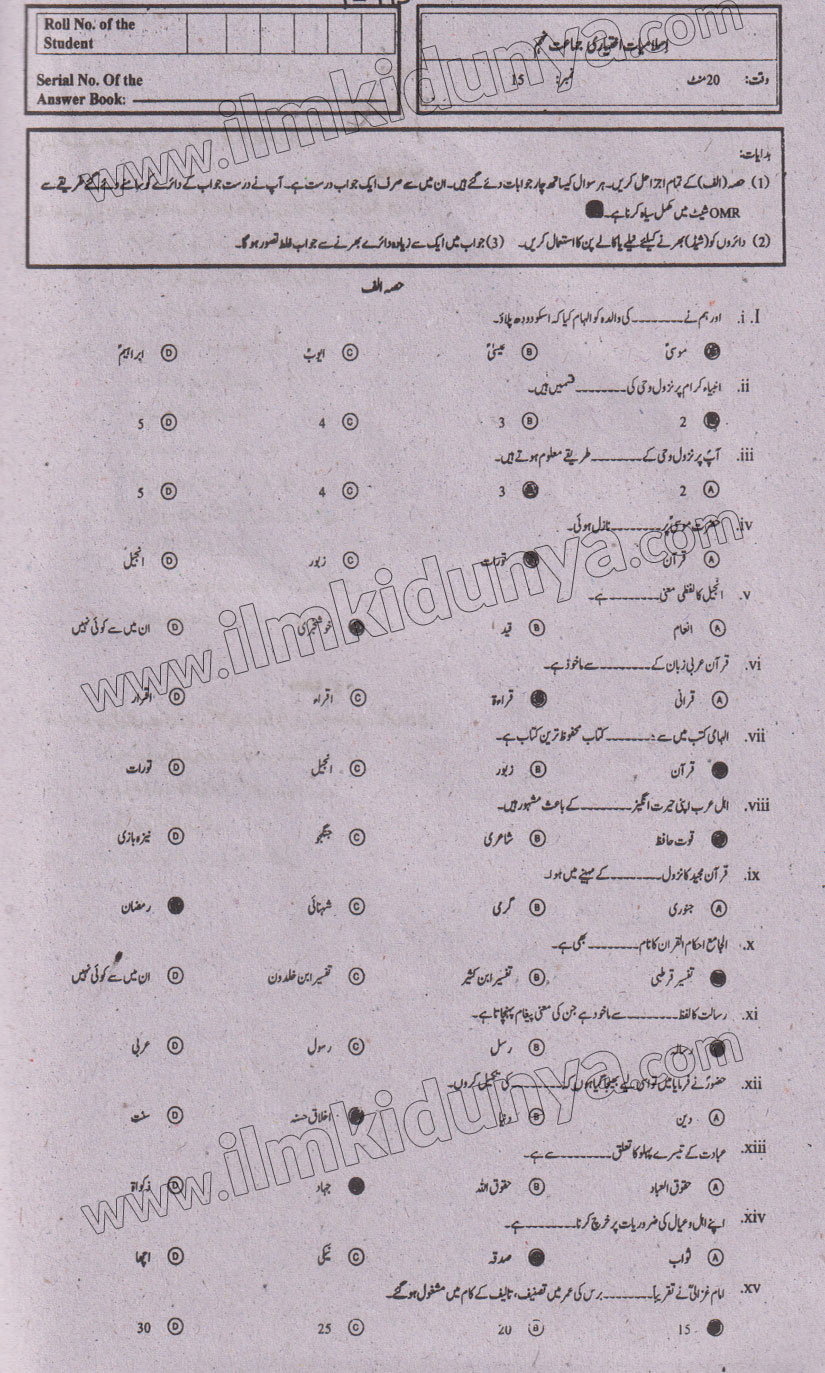 Roll No. of the
Student
Serial No. Of the
Answer Book:
اسلامیات اختیاری جماعت نہم
وقت: 20منٹ نمبر: 15
ہدایات:
(1) حصہ (الف) کے تمام اجزا حل کریں۔ ہر سوال کیساتھ چار جوابات دئے گئے ہیں۔ ان میں سے صرف ایک جواب درست ہے۔ آپ نے درست جواب کے دائرے کو سامنے دئے گئے طریقے سے
OMR شیٹ میں مکمل سیاہ کرنا ہے۔
(2) دائروں کو (شیڈ) بھرنے کیلئے نیلے یا کالے پن کا استعمال کریں۔ (3) جواب میں ایک سے زیادہ دائرے بھرنے سے جواب غلط تصور ہوگا۔
حصہ الف
I. i. اور ہم نے ـــــــــ کی والدہ کو الہام کیا کہ اسکو دودھ پلاؤ۔
موسیٰؑ B عیسیٰؑ C ایوبؑ D ابراہیمؑ
ii. انبیاء کرام پر نزول وحی کی ـــــــــ قسمیں ہیں۔
2 B 3 C 4 D 5
iii. آپؐ پر نزول وحی کے ـــــــــ طریقے معلوم ہوتے ہیں۔
A 2 3 C 4 D 5
iv. حضرت موسیٰؑ پر ـــــــــ نازل ہوئی۔
A قرآن تورات C زبور D انجیل
v. انجیل کا لفظی معنی ـــــــــ ہے۔
A انعام B قید خوشخبری D ان میں سے کوئی نہیں
vi. قرآن عربی زبان کے ـــــــــ سے ماخوذ ہے۔
A قرانی قراءۃ C اقراء D اقرار
vii. الہامی کتب میں سے ـــــــــ کتاب محفوظ ترین کتاب ہے۔
قرآن B زبور C انجیل D تورات
viii. اہل عرب اپنی حیرت انگیز ـــــــــ کے باعث مشہور ہیں۔
قوت حافظ B شاعری C جنگجو D نیزہ بازی
ix. قرآن مجید کا نزول ـــــــــ کے مہینے میں ہوا۔
A جنوری B گرمی C شہنائی رمضان
x. الجامع احکام القران کا نام ـــــــــ بھی ہے۔
تفسیر قرطبی B تفسیر ابن کثیر C تفسیر ابن خلدون D ان میں سے کوئی نہیں
xi. رسالت کا لفظ ـــــــــ سے ماخود ہے جن کی معنی پیغام پہنچاتا ہے۔
رسالہ B رسل C رسول D عربی
xii. حضورؐ نے فرمایا میں تو اسی لیے بھیجا گیا ہوں کہ ـــــــــ کی تکمیل کروں۔
A دین B دنیا اخلاق حسنہ D سنت
xiii. عبادت کے تیسرے پہلو کا تعلق ـــــــــ سے ہے۔
A حقوق العباد B حقوق اللہ جہاد D زکواۃ
xiv. اپنے اہل و عیال کی ضروریات پر خرچ کرنا ـــــــــ ہے۔
A ثواب صدقہ C نیکی D اچھا
xv. امام غزالیؒ نے تقریباً ـــــــــ برس کی عمر میں تصنیف، تالیف کے کام میں مشغول ہو گئے۔
15 B 20 C 25 D 30
www.ilmkidunya.com
www.ilmkidunya.com
www.ilmkidunya.com